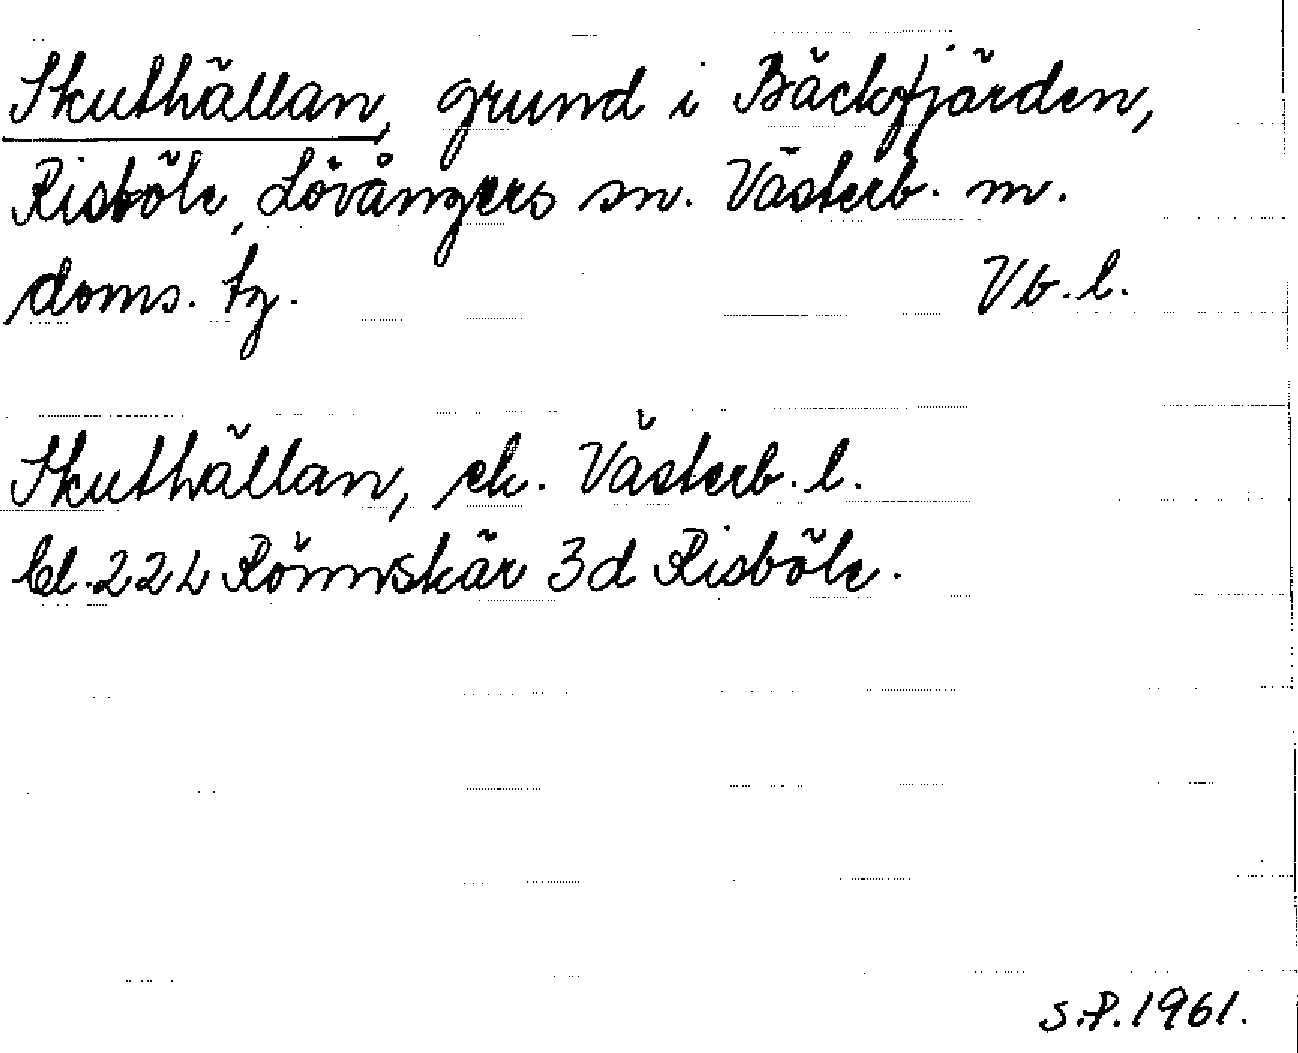 Skuthällan, grund i Bäckfjärden,
Risböle, Lövångers sn. Västerb. m.
doms. tg. Vb. l.
Skuthällan, ek. Västerb. l.
bl. 22L Rönnskär 3d Risböle.
S.P. 1961.